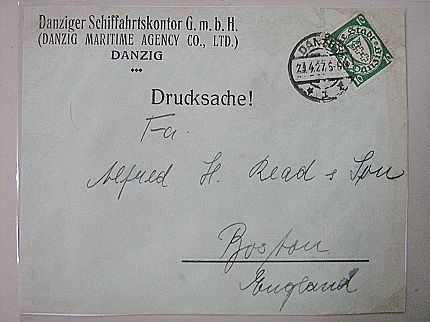 Danziger Schiffahrtskontor G. m. b. H.
(DANZIG MARITIME AGENCY CO., LTD.)
DANZIG
Drucksache!
Fa.
Alfred H. Read & Son
Boston
England